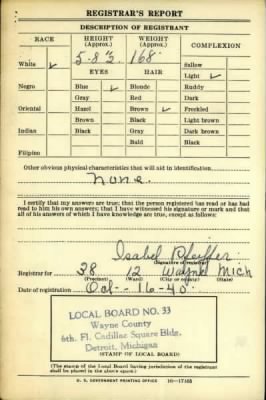 REGISTRAR'S REPORT
DESCRIPTION OF REGISTRANT
RACE HEIGHT (Approx.) WEIGHT (Approx.) COMPLEXION
White ✓ 5-8½ 168 Sallow
EYES HAIR Light ✓
Negro Blue ✓ Blonde Ruddy
Gray Red Dark
Oriental Hazel Brown ✓ Freckled
Brown Black Light brown
Indian Black Gray Dark brown
Bald Black
Filipino
Other obvious physical characteristics that will aid in identification
None.
I certify that my answers are true; that the person registered has read or has had
read to him his own answers; that I have witnessed his signature or mark and that
all of his answers of which I have knowledge are true, except as follows:
Isabel Pfeiffer
(Signature of registrar)
Registrar for 38 12 Wayne Mich
(Precinct) (Ward)
Date of registration Oct - 16 - 40
LOCAL BOARD NO. 33
Wayne County
6th. Fl. Cadillac Square Bldg.
Detroit, Michigan
(STAMP OF LOCAL BOARD)
(The stamp of the Local Board having jurisdiction of the registrant
shall be placed in the above space.)
U. S. GOVERNMENT PRINTING OFFICE 16—17105